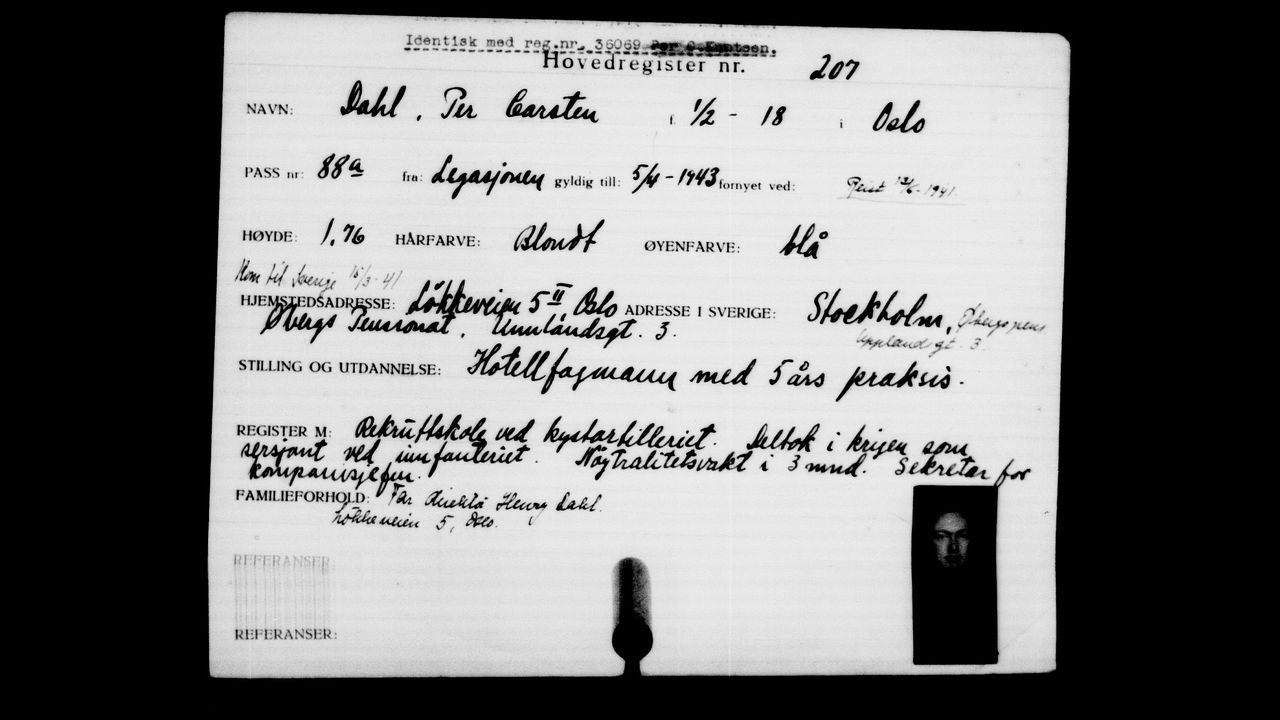 Identisk med reg.nr. 36069 Per C. Knutsen.
Hovedregister nr. 207
NAVN: Dahl, Per Carsten f. 1/2 - 18 i Oslo
PASS nr: 88a fra: Legasjonen gyldig till: 5/4 - 1943 fornyet ved: Reist 12/6-1941
HØYDE: 1,76 HÅRFARVE: Blondt ØYENFARVE: blå
Kom til Sverige 15/3-41
HJEMSTEDSADRESSE: Løkkeveien 5 II Oslo ADRESSE I SVERIGE: Stockholm, Øbergs pens
Øbergs Pensionat, Upplandsgt. 3.
STILLING OG UTDANNELSE: Hotellfagmann med 5 års praksis.
REGISTER M: Rekruttskole ved kystartilleriet. Deltok i krigen som
sersjant ved infanteriet. Nøytralitetsvakt i 3 mnd. Sekretær for
kompanisjefen.
FAMILIEFORHOLD: Far direktør Henry Dahl.
Løkkeveien 5, Oslo.
REFERANSER:
REFERANSER: